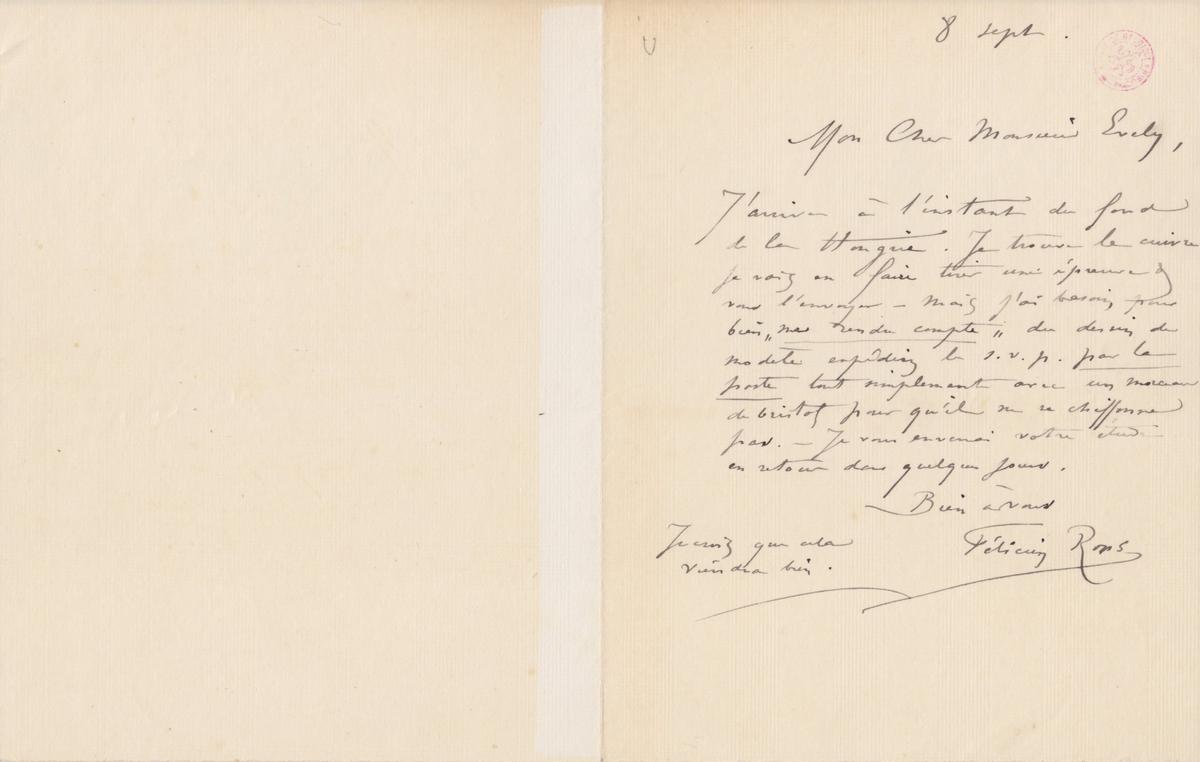 8 sept.
Mon Cher Monsieur Evely,
J'arrive à l'instant du fond
de la Hongrie. Je trouve le cuivre
je vais en faire tirer une épreuve &
vous l'envoyer – mais j'ai besoin pour
bien „me rendre compte„ du dessin du
modèle expédiez le s.v.p. par la
poste tout simplement avec un morceau
de bristol pour qu'il ne se chiffonne
pas. – Je vous enverrai votre étude
en retour dans quelques jours.
Bien à vous
Félicien Rops
Je crois que cela
viendra bien.